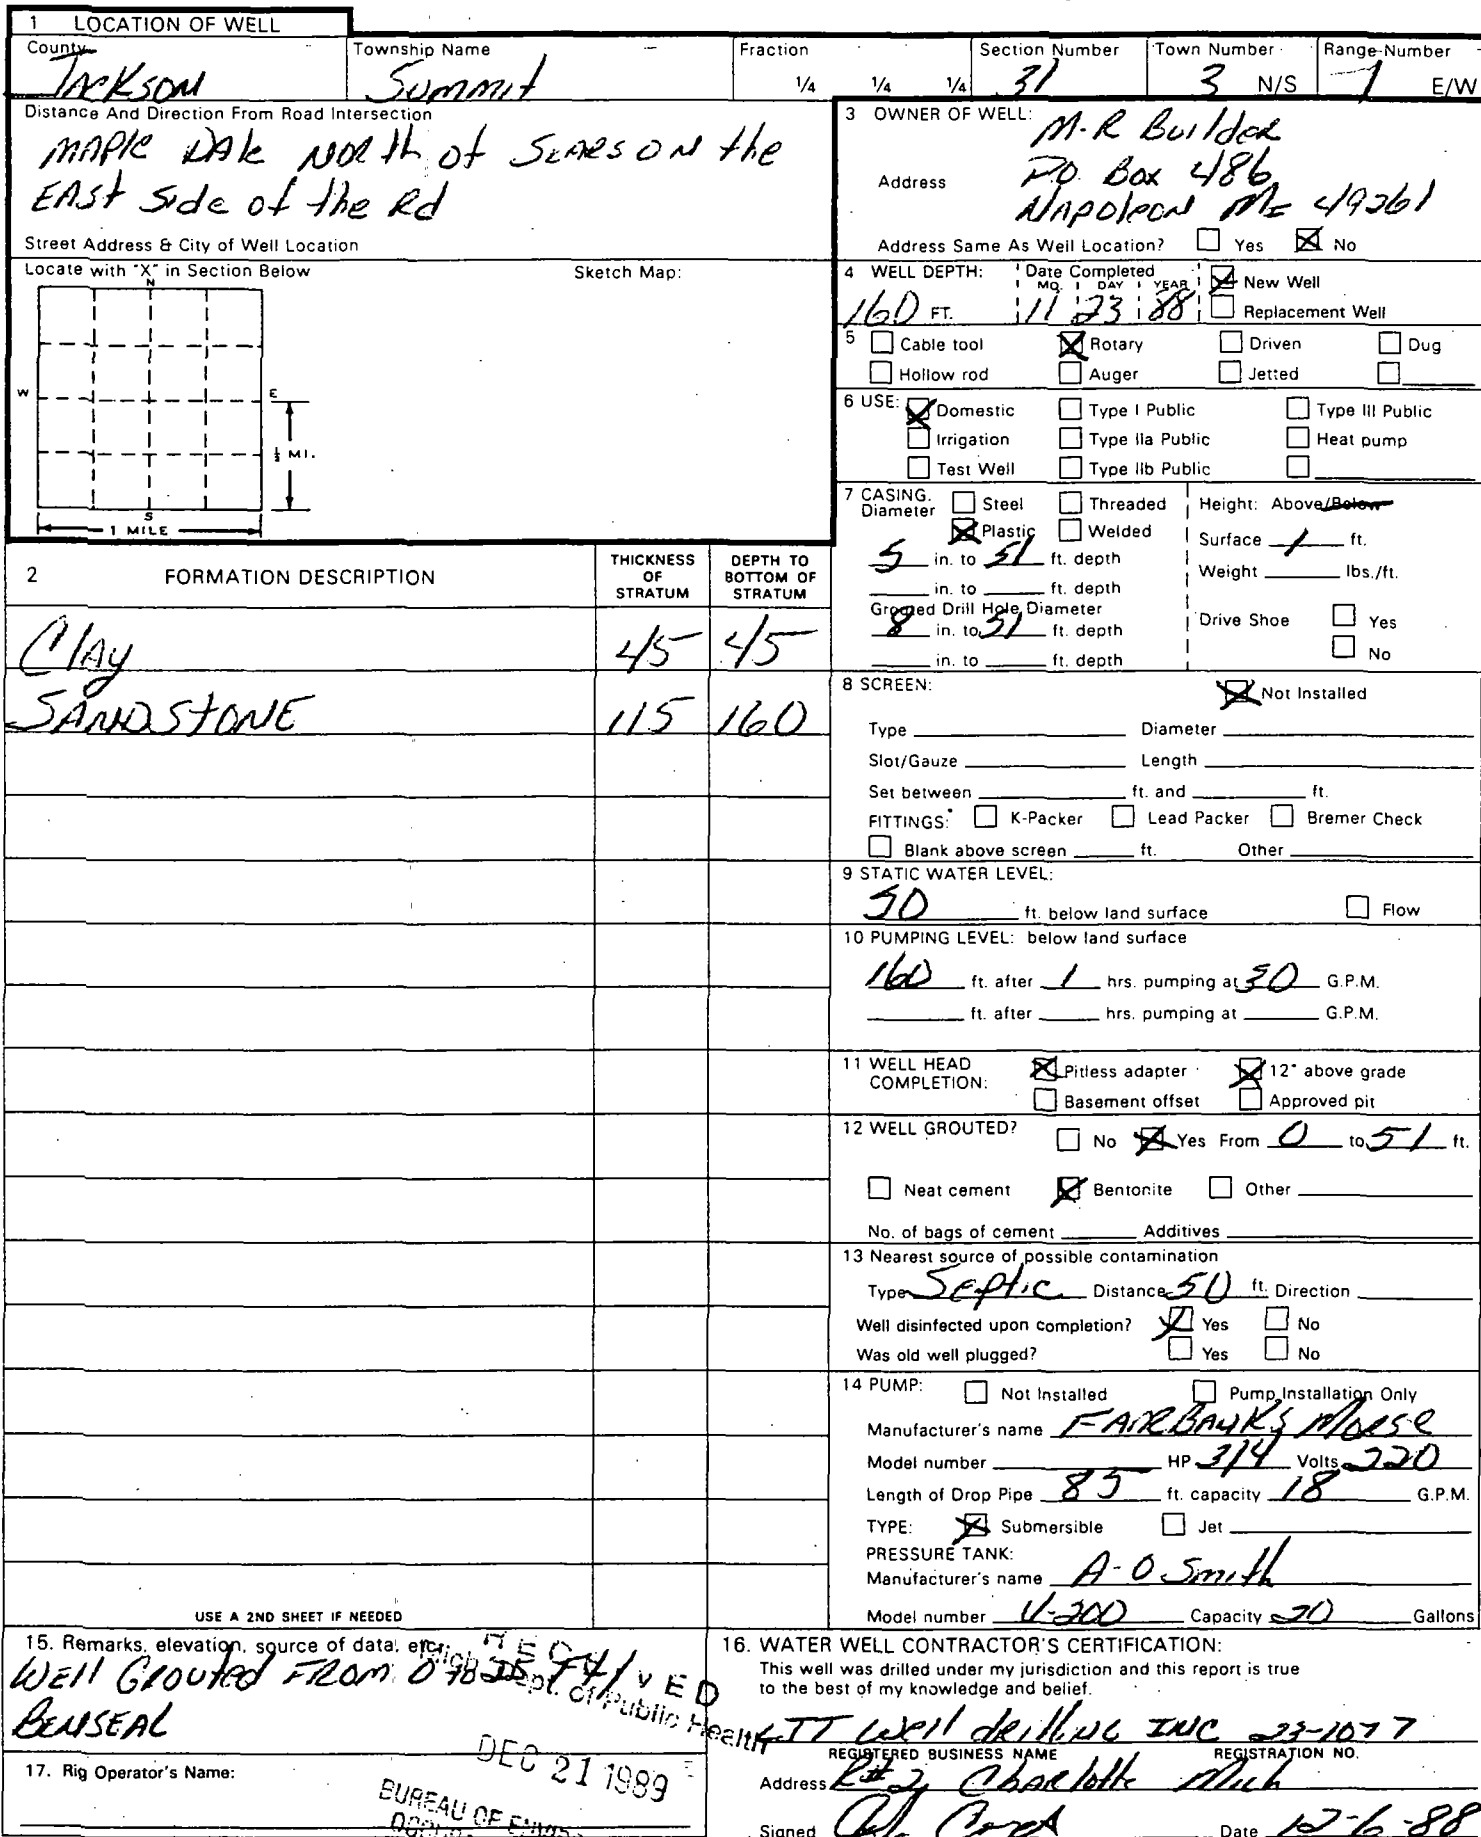 1 LOCATION OF WELL
County Jackson Township Name Summit Fraction 1/4 1/4 1/4 Section Number 31 Town Number 3 N/S Range Number 1 E/W
Distance And Direction From Road Intersection
Maple Dale North of Sears on the
East Side of the Rd
Street Address & City of Well Location
Locate with "X" in Section Below Sketch Map:
N
W E
1/2 MI.
S
1 MILE
3 OWNER OF WELL: M-R Builder
Address P.O. Box 486
Napoleon MI 49261
Address Same As Well Location? Yes No
4 WELL DEPTH: 160 FT. Date Completed MO. 11 DAY 23 YEAR 88 New Well
Replacement Well
5 Cable tool Rotary Driven Dug
Hollow rod Auger Jetted
6 USE: Domestic Type I Public Type III Public
Irrigation Type IIa Public Heat pump
Test Well Type IIb Public
7 CASING. Diameter Steel Threaded Height: Above/Below
Plastic Welded Surface 1 ft.
5 in. to 51 ft. depth
in. to ft. depth Weight lbs./ft.
Grouted Drill Hole Diameter
8 in. to 51 ft. depth Drive Shoe Yes
in. to ft. depth No
2 FORMATION DESCRIPTION THICKNESS OF STRATUM DEPTH TO BOTTOM OF STRATUM
Clay 45 45
SANDSTONE 115 160
USE A 2ND SHEET IF NEEDED
8 SCREEN: Not Installed
Type Diameter
Slot/Gauze Length
Set between ft. and ft.
FITTINGS: K-Packer Lead Packer Bremer Check
Blank above screen ft. Other
9 STATIC WATER LEVEL:
50 ft. below land surface Flow
10 PUMPING LEVEL: below land surface
160 ft. after 1 hrs. pumping at 30 G.P.M.
ft. after hrs. pumping at G.P.M.
11 WELL HEAD COMPLETION: Pitless adapter 12" above grade
Basement offset Approved pit
12 WELL GROUTED? No Yes From 0 to 51 ft.
Neat cement Bentonite Other
No. of bags of cement Additives
13 Nearest source of possible contamination
Type Septic Distance 50 ft. Direction
Well disinfected upon completion? Yes No
Was old well plugged? Yes No
14 PUMP: Not Installed Pump Installation Only
Manufacturer's name FAIRBANKS Morse
Model number HP 3/4 Volts 220
Length of Drop Pipe 85 ft. capacity 18 G.P.M.
TYPE: Submersible Jet
PRESSURE TANK:
Manufacturer's name A-O Smith
Model number V-200 Capacity 20 Gallons
15. Remarks, elevation, source of data, etc.
Well Grouted From 0 to
BENSEAL
RECEIVED
Mich. Dept. of Public Health
DEC 21 1989
BUREAU OF
17. Rig Operator's Name:
16. WATER WELL CONTRACTOR'S CERTIFICATION:
This well was drilled under my jurisdiction and this report is true
to the best of my knowledge and belief.
Well drilling INC 23-1077
REGISTERED BUSINESS NAME REGISTRATION NO.
Address R#2, Charlotte Mich
Signed Date 12-6-88